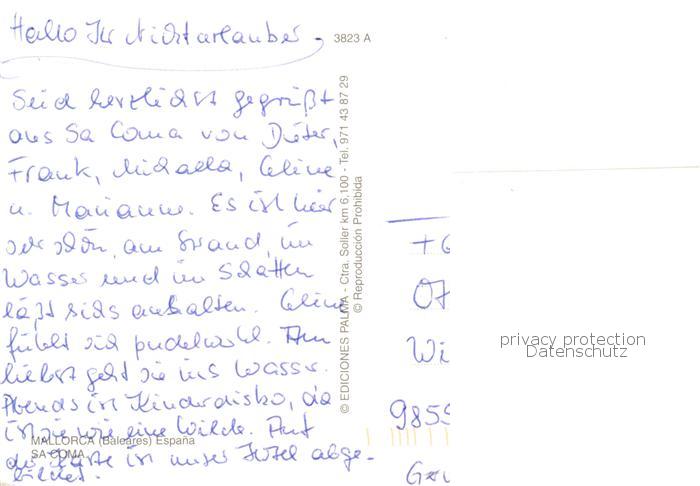 Hallo Ihr Nichturlauber,
3823 A
Seid herzlichst gegrüßt
aus Sa Coma von Dieter,
Frank, Michaela, Celine
u. Marianne. Es ist hier
sehr schön, am Strand, im
Wasser und im Schatten
läßt sichs aushalten. Celine
fühlt sich pudelwohl. Am
liebst geht sie ins Wasser.
Abends ist Kinderdisko, da
ist sie wie eine Wilde. Auf
die Karte ist unser Hotel abge-
bildet.
MALLORCA (Baleares) España
SA COMA
© EDICIONES PALMA - Ctra. Soller km 6,100 - Tel. 971 43 87 29
© Reproducción Prohibida
07
Wi
9855
privacy protection
Datenschutz